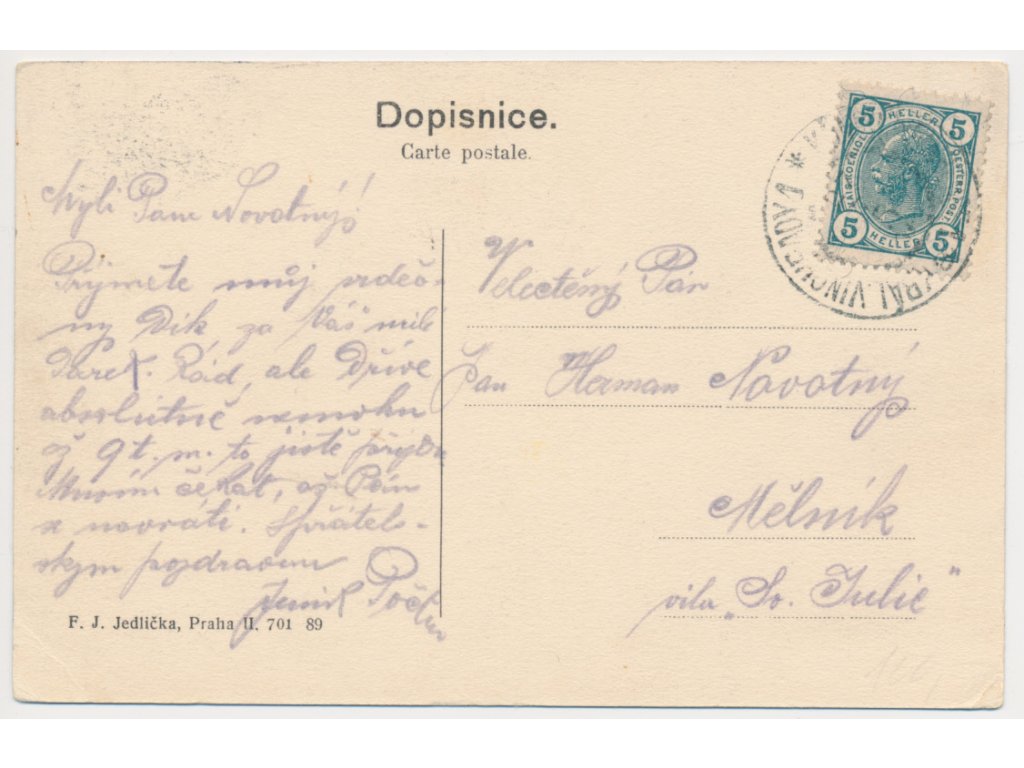 Dopisnice.
Carte postale.
5 HELLER 5
KAIS. KOENIGL. OESTERR. POST.
5 HELLER 5
KRÁL. VINOHRADY 1 *
Mylí Pane Novotný!
Přÿmete můj srdeč-
ny Dík za Váš milí
Dárek. Rád, ale Dříve
absolutně nemohu
až 9 t. m. to jistě přÿdu
Musím čekat, až Pán
se navrátí. S přátel-
ským pozdravem
F. J. Jedlička, Praha II. 701 89
Velectěný Pán
Pan Herman Novotný
Mělník
vila „Sv. Julie"